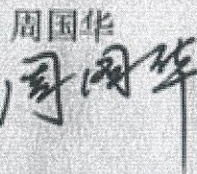 周国华
周国华